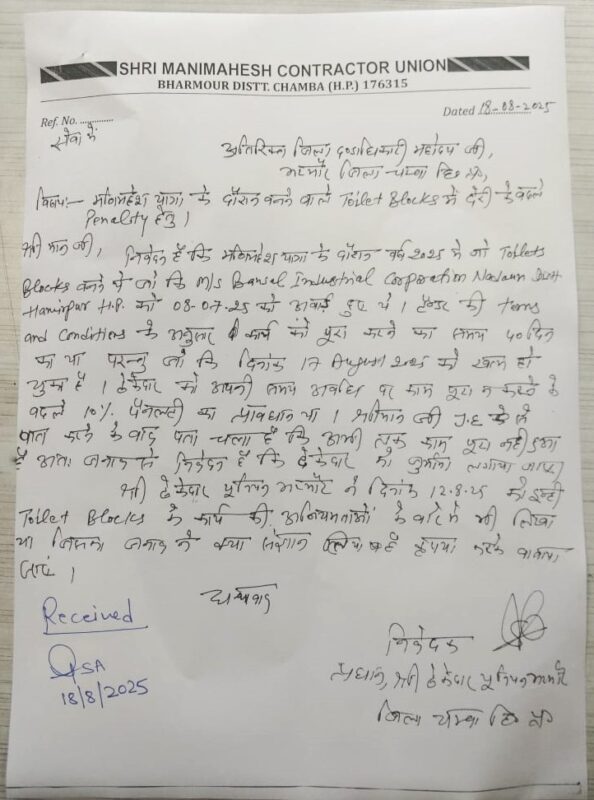 SHRI MANIMAHESH CONTRACTOR UNION
BHARMOUR DISTT. CHAMBA (H.P.) 176315
Ref. No. ............
Dated 18-08-2025
सेवा में
अतिरिक्त जिला दण्डाधिकारी महोदय जी,
भरमौर जिला चम्बा हि० प्र०,
विषय:- मणिमहेश यात्रा के दौरान बनने वाले Toilet Blocks में देरी के बदले
Penalty हेतु।
श्री मान जी, निवेदन है कि मणिमहेश यात्रा के दौरान वर्ष 2025 में जो Toilets
Blocks बनने थे जो कि M/s Bansal Industrial Corporation Nadaun Distt
Hamirpur H.P. को 08-07-25 को अवार्ड हुए थे। टेण्डर की terms
and Conditions के अनुसार कार्य को पूरा करने का समय 40 दिन
का था परन्तु जो कि दिनांक 17 August 2025 को खत्म हो
चुका है। ठेकेदार को अपनी समय अवधि पर काम पूरा न करने के
बदले 10% पैनल्टी का प्रावधान था। श्रीमान जी J.E से
बात करने के बाद पता चला है कि अभी तक काम पूरा नहीं हुआ
है अतः जनाब से निवेदन है कि ठेकेदार को जुर्माना लगाया जाए।
श्री ठेकेदार यूनियन भरमौर ने दिनांक 12.8.25 को इन्ही
Toilet Blocks के कार्य की अनियमताओं के बारे में भी लिखा
था जिसका जनाब ने क्या संज्ञान लिया है कृपया करके बताया
जाए।
धन्यवाद
Received
SA
18/8/2025
निवेदक
प्रधान, श्री ठेकेदार यूनियन भरमौर
जिला चम्बा हि० प्र०